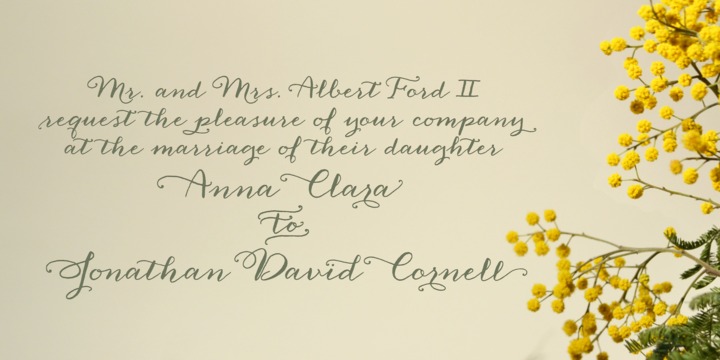 Mr. and Mrs. Albert Ford II
request the pleasure of your company
at the marriage of their daughter
Anna Clara
To
Jonathan David Cornell